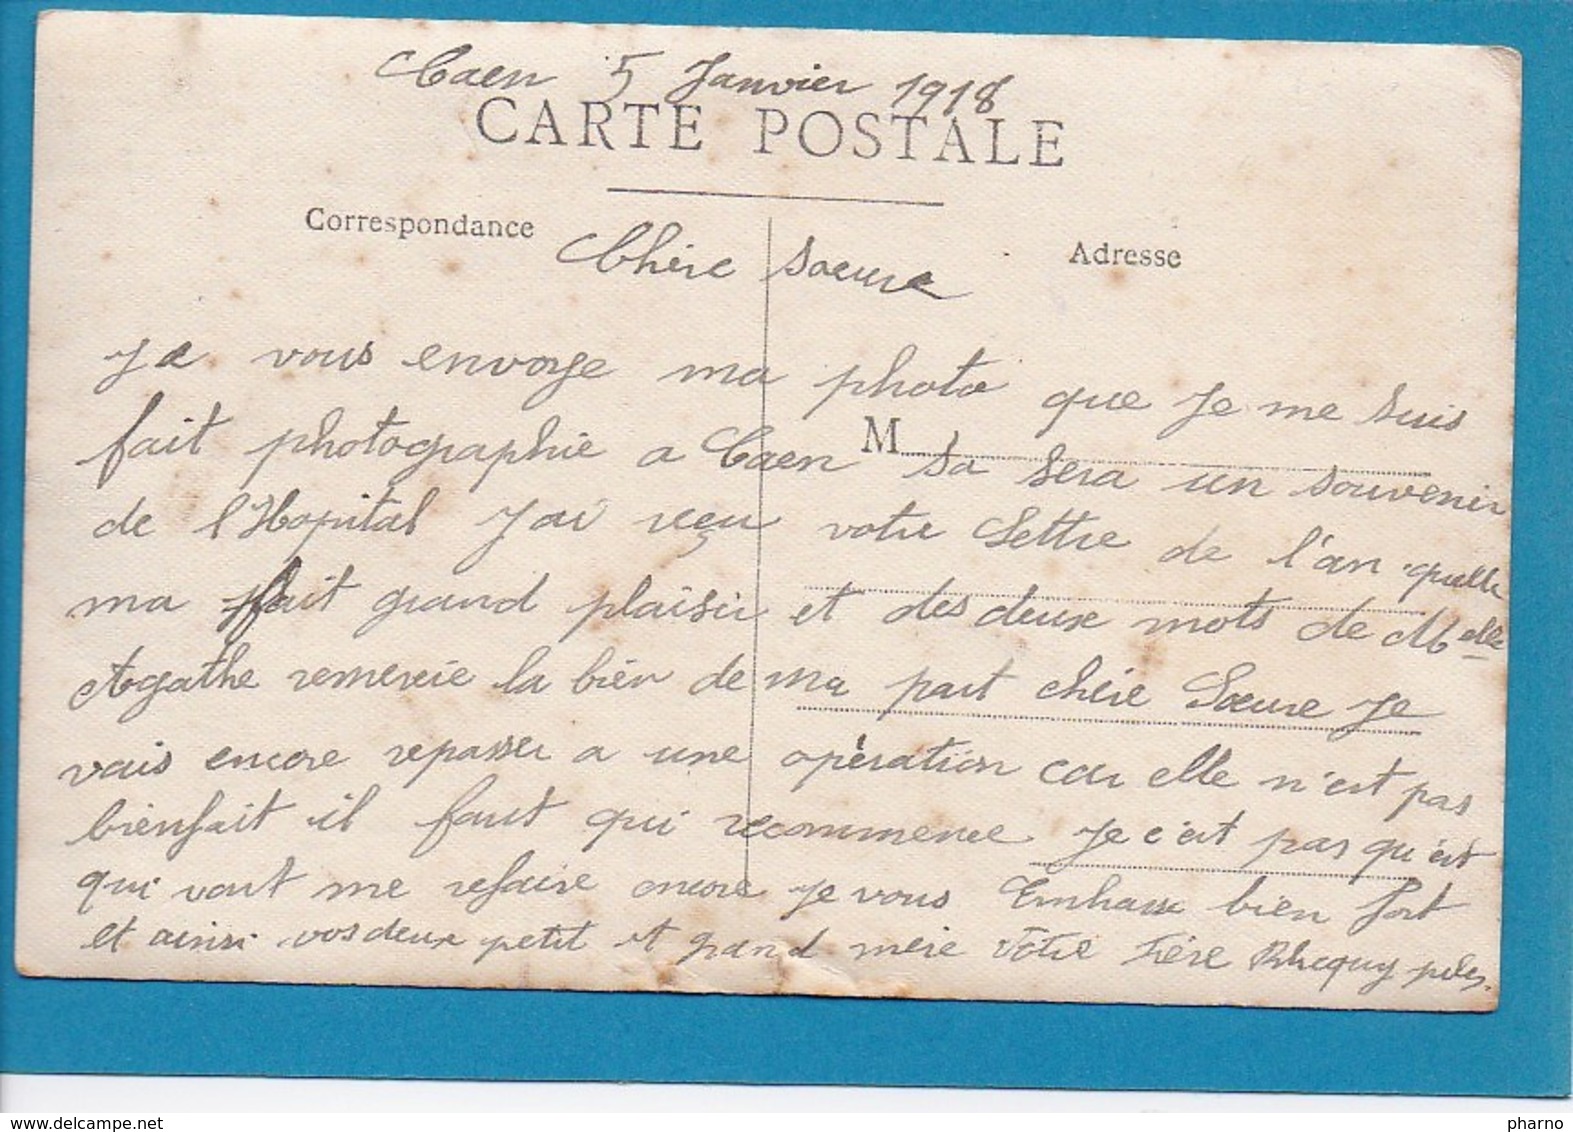 Caen 5 Janvier 1918
CARTE POSTALE
Correspondance
Adresse
Chère soeure
Je vous envoye ma photo que je me suis
fait photographie a Caen sa sera un souvenir
M
de l'Hopital J'ai reçu votre lettre de l'an quelle
ma fait grand plaisir et des deux mots de Melle
Agathe remercie la bien de ma part chère Soeure Je
vais encore repasser a une opération car elle n'est pas
bienfait il faut qui recommence Je c'est pas qu'est
qui vont me refaire encore je vous Embrasse bien fort
et ainsi vos deux petit et grand mère Votre Frère
www.delcampe.net
pharno